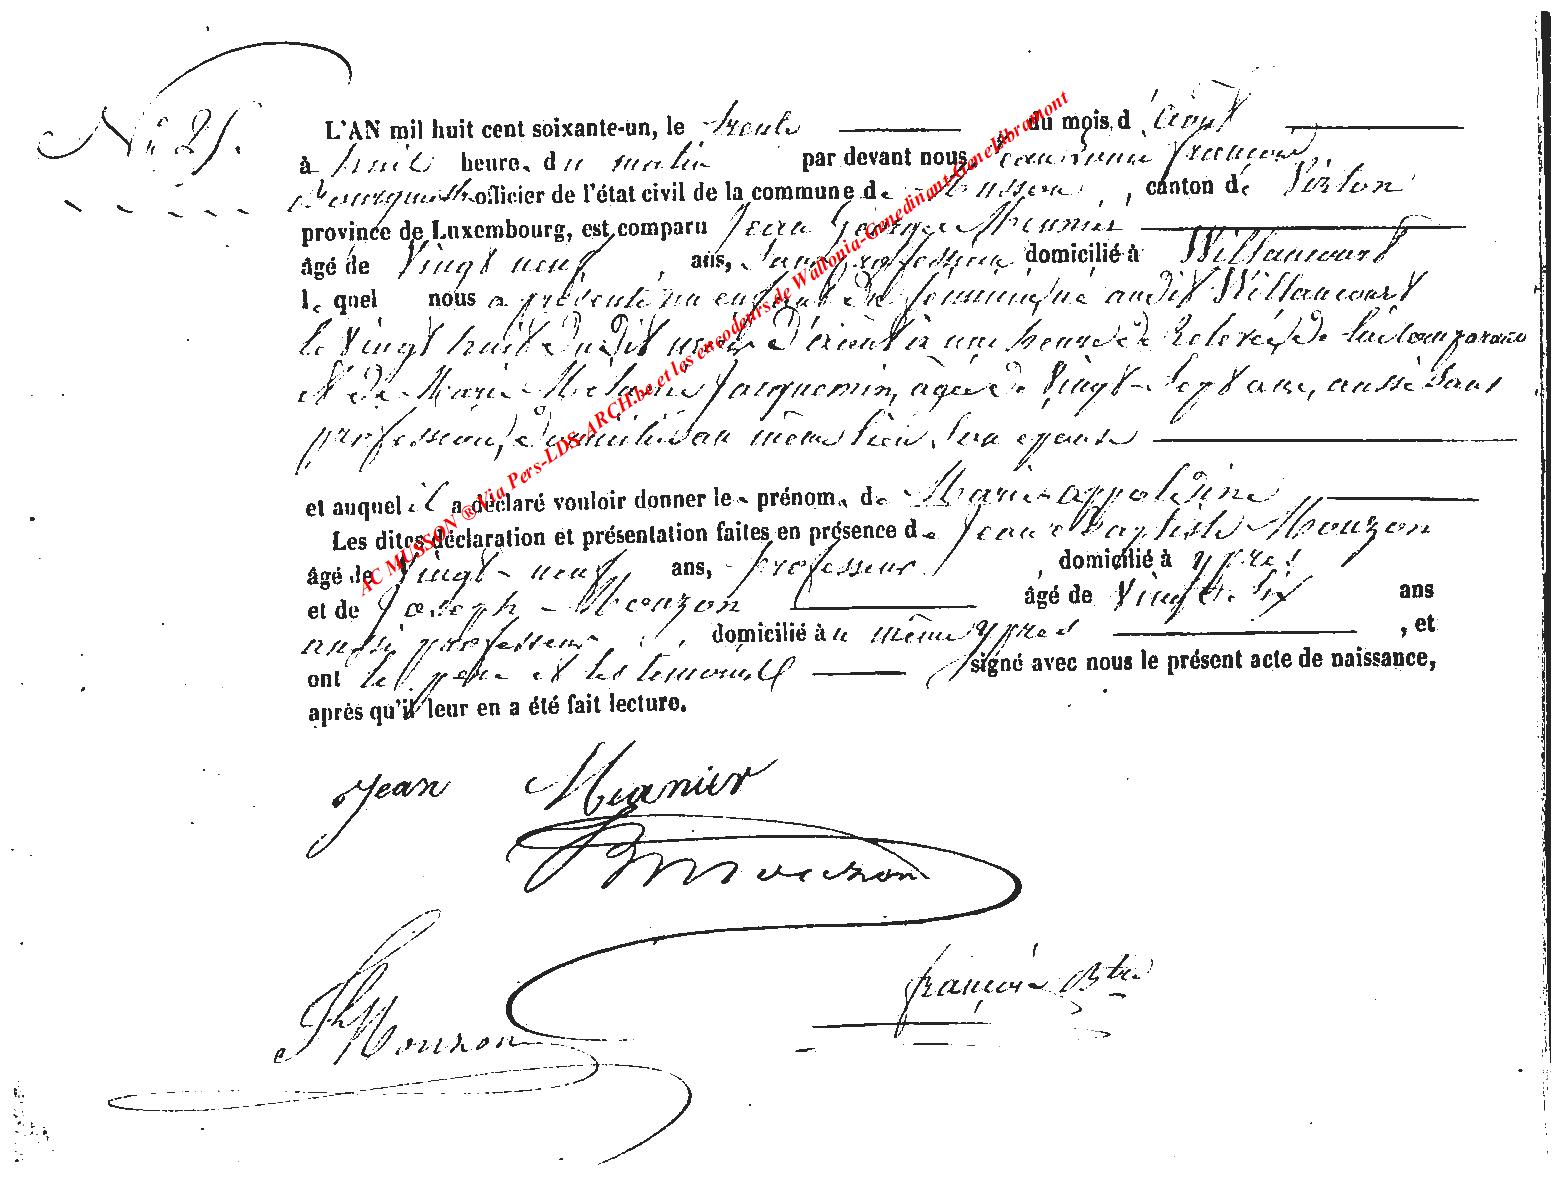 N° 25.
L'AN mil huit cent soixante-un, le trente du mois d'août
à huit heure. du matin par devant nous, Jean François
Bourguignon officier de l'état civil de la commune de Musson, canton de Virton
province de Luxembourg, est comparu Jean George Meunier
âgé de Vingt neuf ans, Sans profession domicilié à Willancourt
le quel nous a présenté un enfant du sex féminin, né audit Willancourt
le Vingt huit du dit mois d'août à une heure de Relevée, de lui Comparant
et de Marie Mélanie Jacquemin, agée de Vingt-Sept ans, aussi Sans
profession, domicilié au même lieu, Son epouse
et auquel il a déclaré vouloir donner le prénom. de Marie-appoline
Les dites déclaration et présentation faites en présence de Jean Baptiste Mouzon
âgé de Vingt-neuf ans, professeur, domicilié à ypres
et de Joseph Mouzon âgé de Vingt Six ans
aussi professeur, domicilié à u même ypres, et
ont le père et les temoins signé avec nous le présent acte de naissance,
après qu'il leur en a été fait lecture.
Jean Meunier
Mouzon
Jh Mouzon
françois Btre
AC MUSSON ® Via Pers-LDS-ARCH.be et les encodeurs de Wallonia-Genedinant-Genelibramont